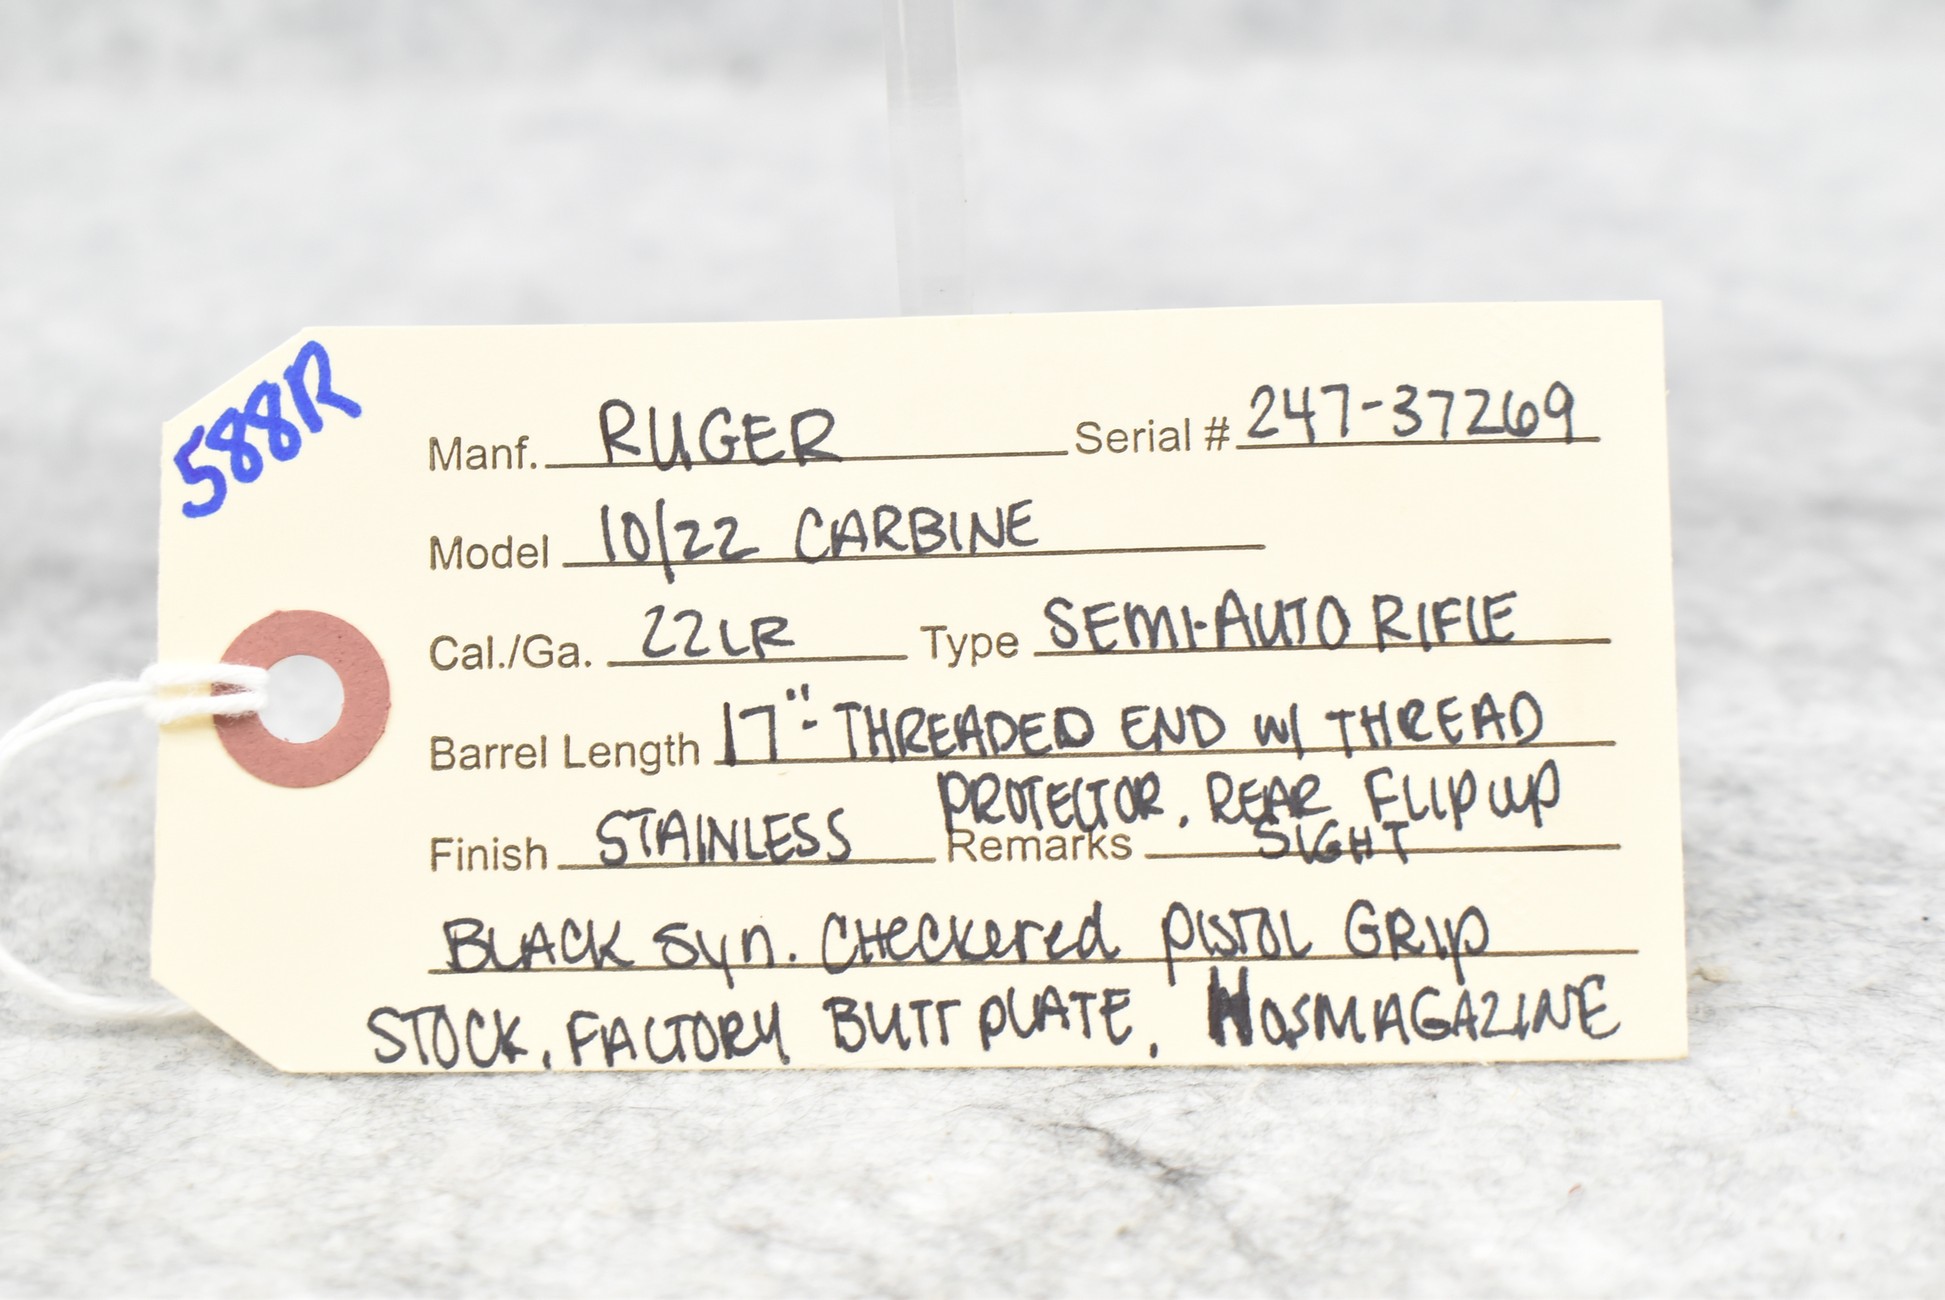 588R
Manf. RUGER Serial # 247-37269
Model 10/22 CARBINE
Cal./Ga. 22LR Type SEMI-AUTO RIFLE
Barrel Length 17"- THREADED END W/ THREAD
PROTECTOR, REAR FLIP UP
Finish STAINLESS Remarks SIGHT
BLACK Syn. CHeckered PISTOL GRIP
STOCK, FACTORY BUTT PLATE, MAGAZINE